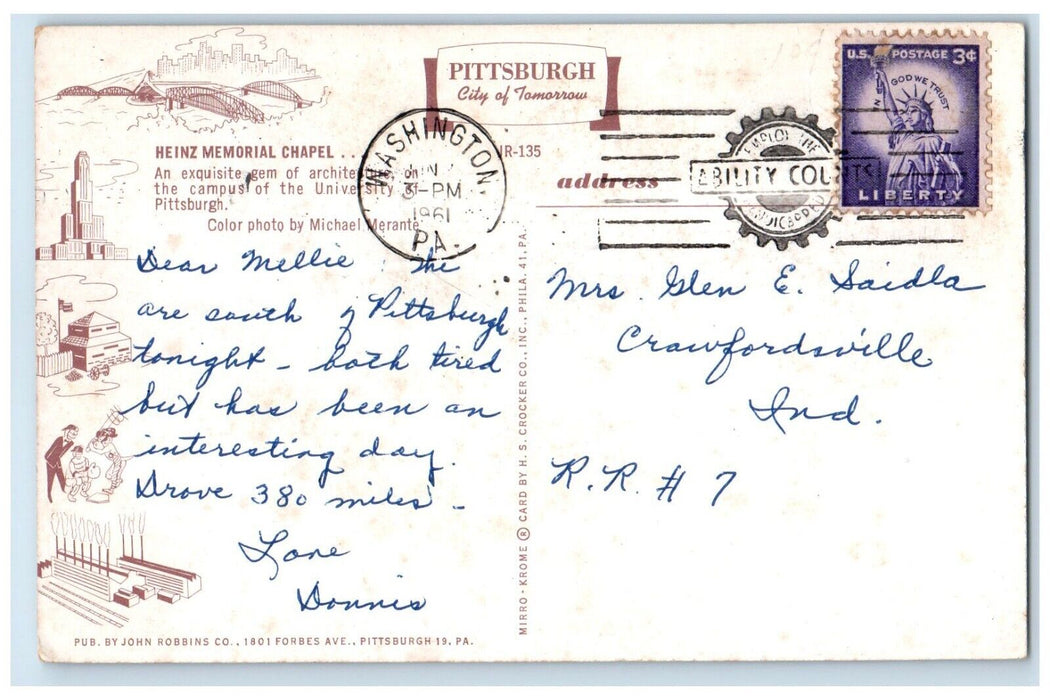 PITTSBURGH
City of Tomorrow
HEINZ MEMORIAL CHAPEL . . .
An exquisite gem of architecture on
the campus of the University of
Pittsburgh.
Color photo by Michael Merante
R-135
WASHINGTON,
JUN
3-PM
1961
PA.
EMPLOY THE
ABILITY COUNTS
HANDICAPPED
U.S. POSTAGE 3¢
IN GOD WE TRUST
LIBERTY
address
Dear Mellie
are south of Pittsburgh
tonight – both tired
but has been an
interesting day.
Drove 380 miles –
Love
Donnis
Mrs. Glen E. Saidla
Crawfordsville
Ind.
R.R. # 7
MIRRO-KROME ® CARD BY H. S. CROCKER CO., INC., PHILA. 41, PA.
PUB. BY JOHN ROBBINS CO., 1801 FORBES AVE., PITTSBURGH 19, PA.